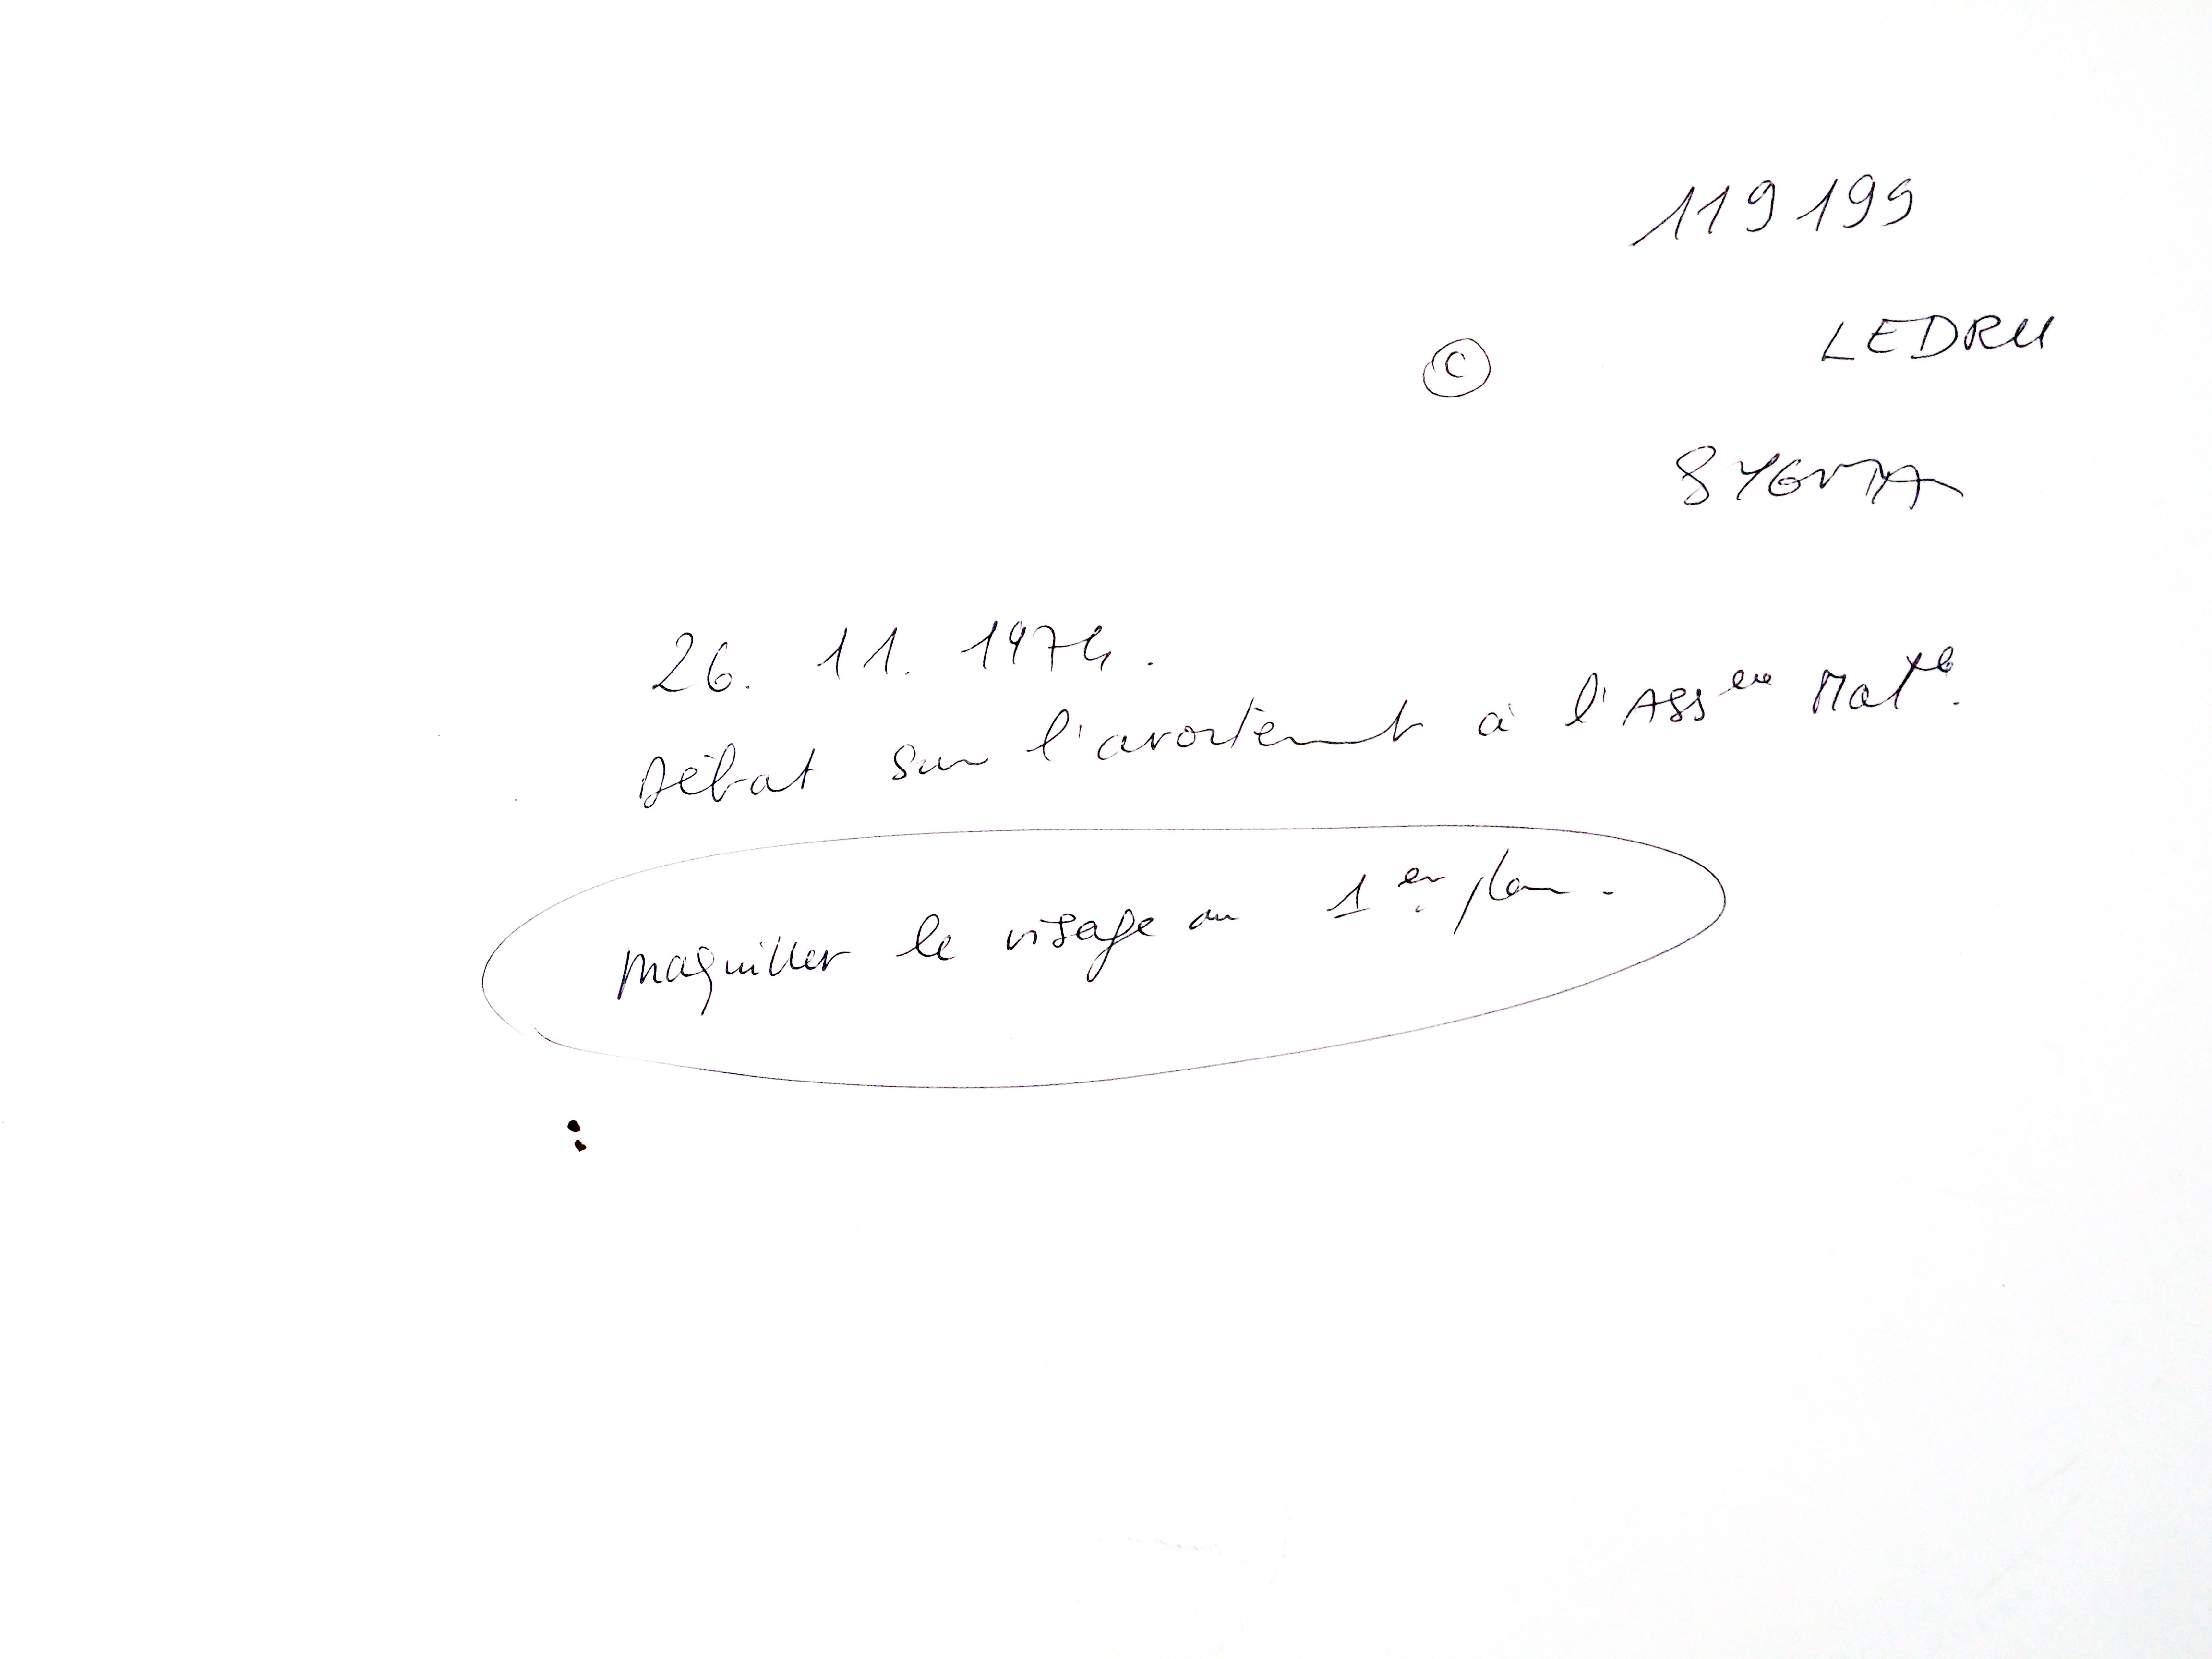 119 199
LEDRU
©
SYGMA
26. 11. 1974.
Débat sur l'avortement à l'Assée Natle.
Maquiller le visage au 1er plan.